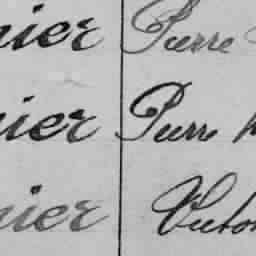 nier Pierre
nier Pierre
nier Victor